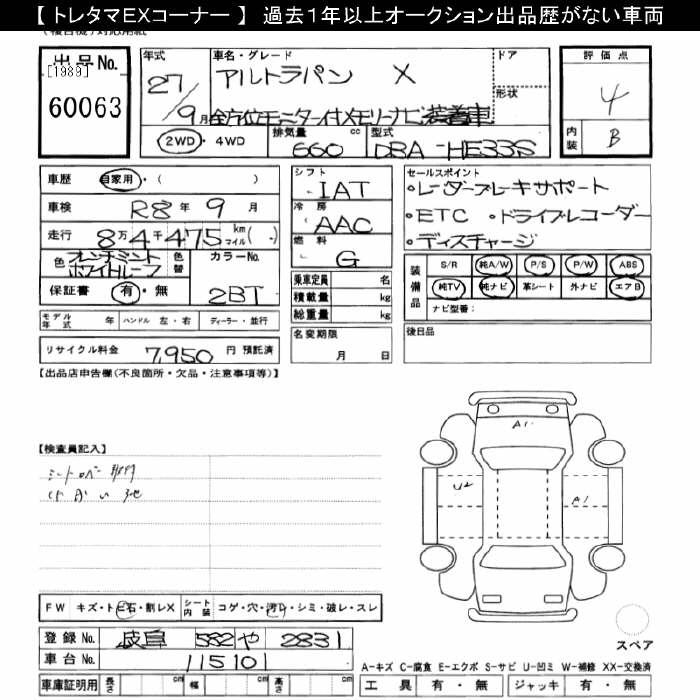 【 トレタマEXコーナー 】 過去1年以上オークション出品歴がない車両
出 品 No.
[1989]
60063
年式 車名・グレード ドア
27/9月 アルトラパン X 形状
全方位モニター付メモリーナビ装着車
2WD ・ 4WD 排気量 660 cc 型式 DBA-HE33S
評 価 点
4
内装 B
車歴 自家用・( )
車検 R8年 9月
走行 8万4千475 km マイル( )
色 フレンチミント ホワイトルーフ 色替 カラーNo.
保証書 有・無 2BT
モデル年式 年 ハンドル 左・右 ディーラー・並行
リサイクル料金 7,950 円 預託済
シフト IAT
冷房 AAC
燃料 G
乗車定員 名
積載量 kg
総重量 kg
名変期限
月 日
セールスポイント
・レーダーブレーキサポート
・ETC ・ドライブレコーダー
・ディスチャージ
装備品 S/R 純A/W P/S P/W ABS
純TV 純ナビ 革シート 外ナビ エアB
ナビ型番:
後日品
【出品店申告欄(不良箇所・欠品・注意事項等)】
【検査員記入】
A1
U2
A1
FW キズ・トビ石・割レX シート内装 コゲ・穴・汚レ・シミ・破レ・スレ
登録 No. 岐阜 582 や 2831
車台 No. 115101
車庫証明用 長さ cm 幅 cm 高さ cm
スペア
A-キズ C-腐食 E-エクボ S-サビ U-凹ミ W-補修 XX-交換済
工 具 有 ・ 無 ジャッキ 有 ・ 無